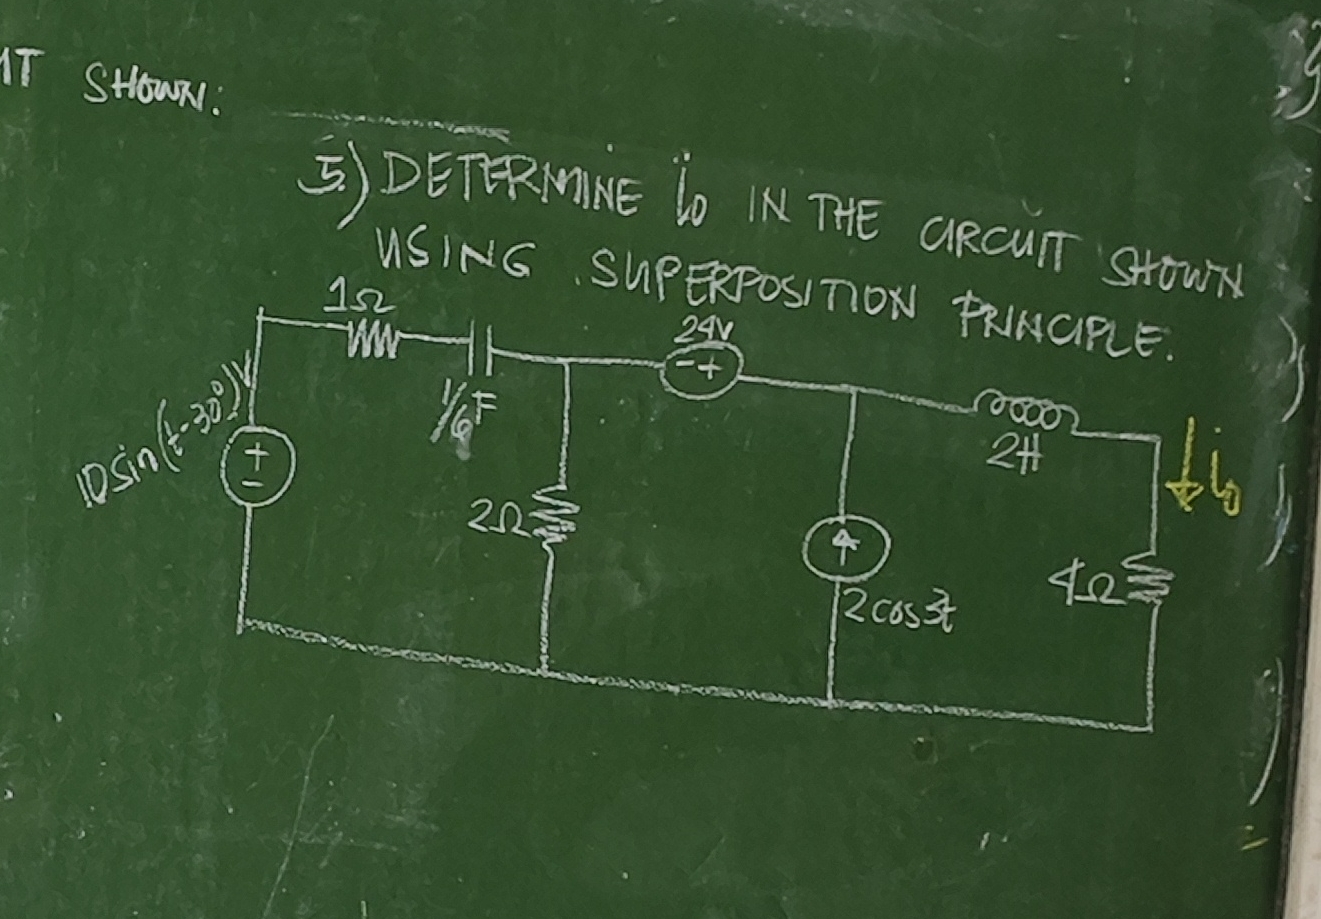 SHOWN:
5.) DETERMINE io IN THE CIRCUIT SHOWN
USING SUPERPOSITION PRINCIPLE.
1Ω
24V
10sin(t-30°)V
1/6F
- +
2H
io
+
-
2Ω
4Ω
2cos3t